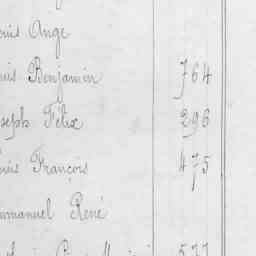 ouis Ange
uis Benjamin 764
seph Félix 296
uis François 475
mmanuel René
577